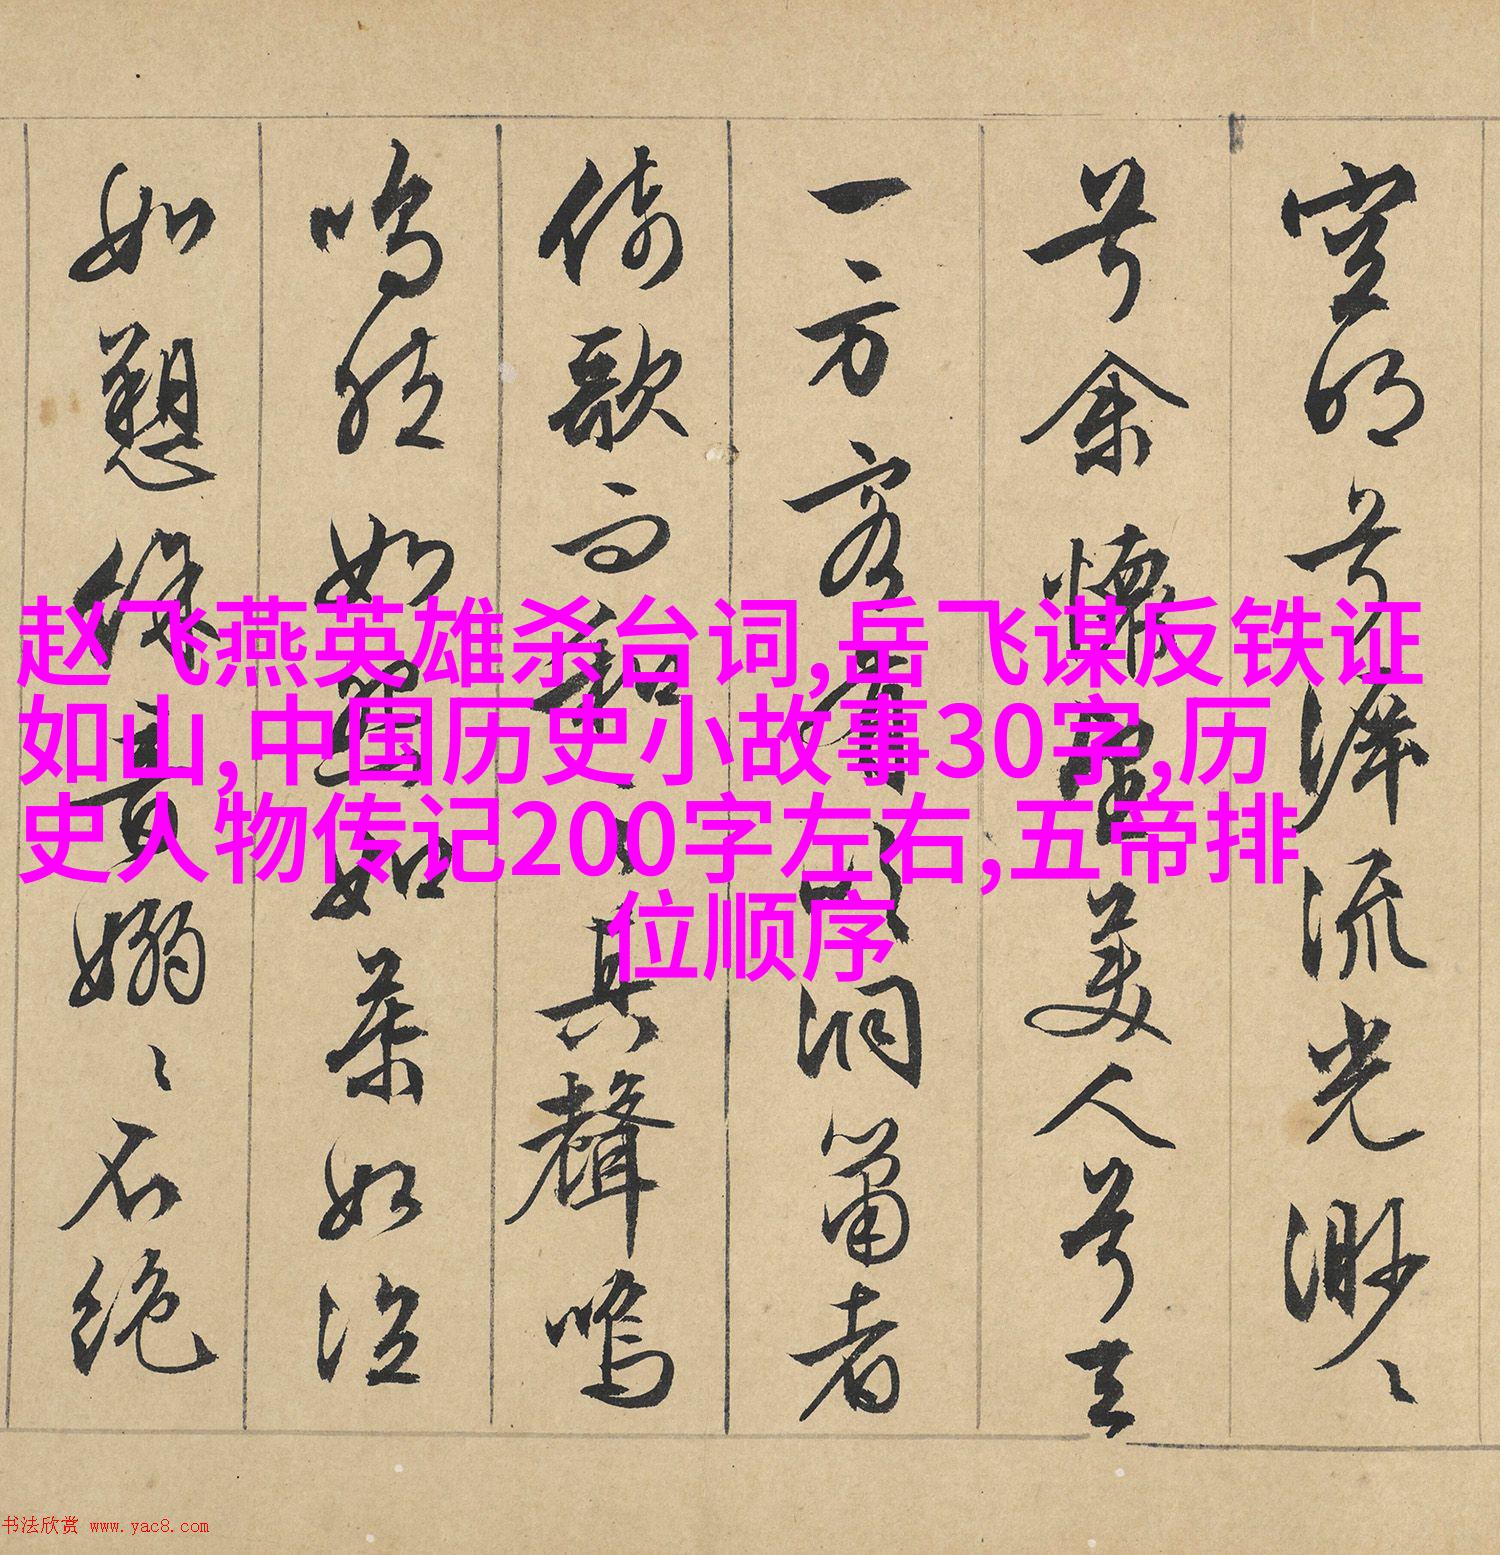 空明兮流光渺〻
兮余懷望美人兮天
一方客有吹洞簫者
倚歌而和之其聲嗚
嗚然如怨如慕如泣
如愬餘音嫋〻不絕
赵飞燕英雄杀台词,岳飞谋反铁证
如山,中国历史小故事30字,历
史人物传记200字左右,五帝排
位顺序
书法欣赏 www.yac8.com